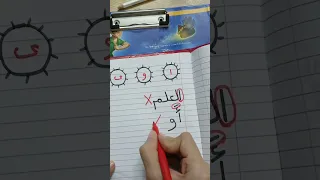 ا و ى
العلم X
أو